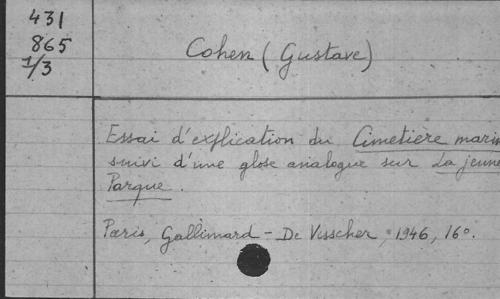 431
865
1/3
Cohen (Gustave)
Essai d'explication du Cimetière marin
suivi d'une glose analogue sur La jeune
Parque.
Paris, Gallimard - De Visscher, 1946, 16°.